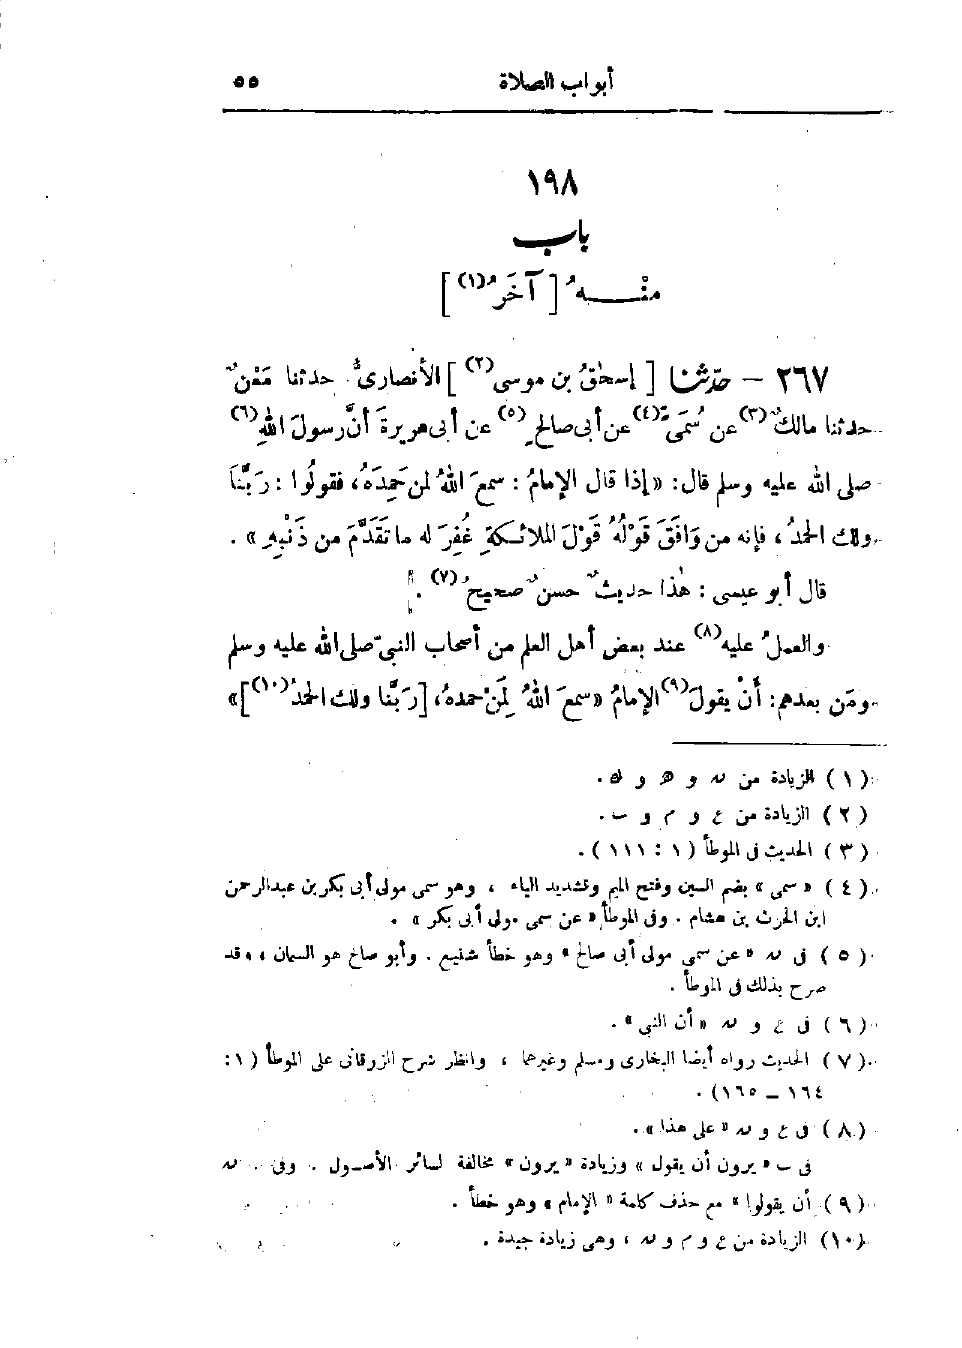 أبواب الصلاة ٥٥
١٩٨
باب
منْـــهُ [ آخَرُ (١) ]
٢٦٧ — حدّثنا [ إسحٰقُ بن موسى (٢) ] الأنصارىُّ حدثنا مَعْنٌ
حدثنا مالكٌ (٣) عن سُمَىٍّ (٤) عن أبى صالحٍ (٥) عن أبى هريرةَ أنَّ رسولَ اللهِ (٦)
صلى الله عليه وسلم قال : «إذا قال الإمامُ : سمعَ اللهُ لمن حَمِدَهُ ، فقولُوا : رَبَّنَا
ولك الحمدُ ، فإنه من وَافَقَ قَوْلُهُ قَوْلَ الملائكةِ غُفِرَ له ما تَقَدَّمَ من ذَنْبِهِ » .
قال أبو عيسى : هٰذا حديثٌ حسنٌ صحيحٌ (٧) .
والعملُ عليه (٨) عند بعض أهل العلم من أصحاب النبىّ صلى الله عليه وسلم
ومَن بعدهم : أَنْ يقولَ (٩) الإمامُ «سمعَ اللهُ لِمَنْ حمده ، [رَبَّنا ولك الحمدُ (١٠)]»
(١) الزيادة من ﻧـﻪ و ﻫ و ك .
(٢) الزيادة من ع و م و ب .
(٣) الحديث فى الموطأ (١ : ١١١) .
(٤) «سمى» بضم السين وفتح الميم وتشديد الياء ، وهو سمى مولى أبى بكر بن عبدالرحمن
ابن الحرث بن هشام . وفى الموطأ «عن سمى مولى أبى بكر» .
(٥) فى ﻧـﻪ «عن سمى مولى أبى صالح» وهو خطأ شنيع . وأبو صالح هو السمان ، وقد
صرح بذلك فى الموطأ .
(٦) فى ع و ﻧـﻪ «أن النبى» .
(٧) الحديث رواه أيضا البخارى ومسلم وغيرهما ، وانظر شرح الزرقانى على الموطأ (١ :
١٦٤ — ١٦٥) .
(٨) فى ع و ﻧـﻪ «على هذا» .
فى ب «يرون أن يقول» وزيادة «يرون» مخالفة لسائر الأصول . وفى ﻧـﻪ
(٩) أن يقولوا» مع حذف كلمة «الإمام» وهو خطأ .
(١٠) الزيادة من ع و م و ﻧـﻪ ، وهى زيادة جيدة .